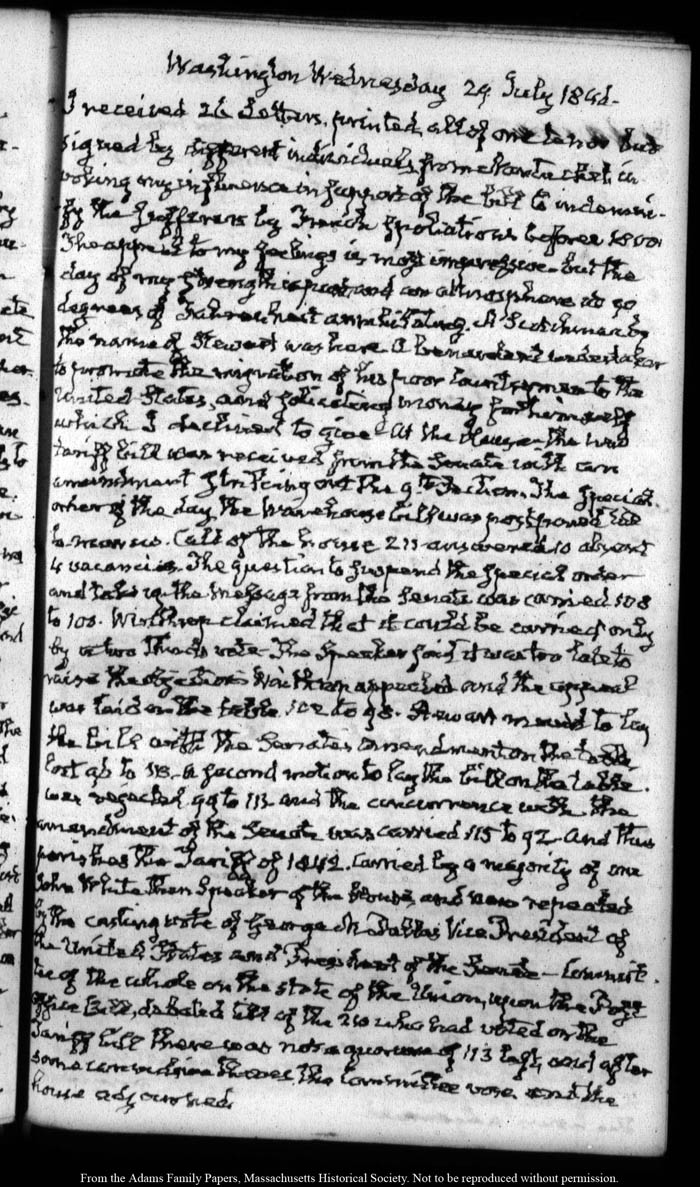 Washington Wednesday 29 July 1846.
I received 26 Letters, printed, all of one tenor but
signed by different individuals from Nantucket in
voking my influence in support of the bill to indemni-
fy the sufferers by French spoliations before 1800
The appeal to my feelings is most impressive but the
day of my strength is past and an atmosphere at 90
degrees of Fahrenheit annihilating. A Scotchman by
the name of Stewart was here. A benevolent undertaker
to promote the migration of his poor Countrymen to the
United States, and soliciting money for himself
which I declined to give. At the House the new
tariff bill was received from the Senate with an
amendment striking out the 9th Section. The special
order of the day the Warehouse bill was postponed till
to morrow. Call of the house 211 answered 10 absent
4 vacancies. The question to suspend the special order
and take up the message from the Senate was carried 108
to 101. Winthrop claimed that it could be carried only
by a two thirds vote. The Speaker said it was too late to
raise the objection Winthrop appealed and the appeal
was laid on the table 102 to 98. Stewart moved to lay
the bill with the Senates amendment on the table
lost 96 to 113. A second motion to lay the bill on the table
was rejected 99 to 111 and the concurrence with the
amendment of the Senate was carried 115 to 92. And thus
perishes the Tariff of 1842. Carried by a majority of one
John White then Speaker of the House, and now repealed
by the casting vote of George M Dallas Vice President of
the United States and President of the Senate – Commit-
tee of the whole on the state of the Union, upon the Post
Office Bill, debated till of the 210 who had voted on the
Tariff bill there was not a quorum of 113 left, and after
some the Committee rose and the
house adjourned.
From the Adams Family Papers, Massachusetts Historical Society. Not to be reproduced without permission.